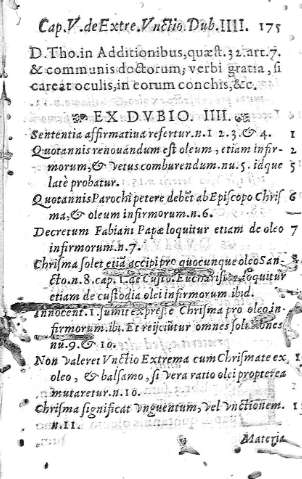 Cap. V. de Extre. Vnctio. Dub. IIII. 175
D. Tho. in Additionibus, quæst. 32. art. 7.
& communis doctorum, verbi gratia, si
careat oculis, in eorum conchis, &c.
EX DVBIO. IIII.
Sententia affirmatiua refertur. n. 1 2. 3. & 4. 1
Quotannis renouandum est oleum, etiam infir- 2
morum, & vetus comburendum. nu. 5. idque 5
latè probatur.
Quotannis Parochi petere debẽt ab Episcopo Chris 6
ma, & oleum infirmorum. n. 6.
Decretum Fabiani Papæ loquitur etiam de oleo 7
infirmorum. n. 7.
Chrisma solet etiã accipi pro quocunque oleo San-
cto. n. 8. cap. 1. de Custo. Eucharistiæ loquitur
etiam de custodia olei infirmorum ibid.
Innocent. 1. sumit expresse Chrisma pro oleo in-
firmorum. ibi. Et reijciũtur omnes solutiones
nu. 9. & 10.
Non valeret Vnctio Extrema cum Chrismate ex 1
oleo, & balsamo, si vera ratio olei propterea
mutaretur. n. 10.
Chrisma significat vnguentum, vel vnctionem. 1
n. 11.
Materia